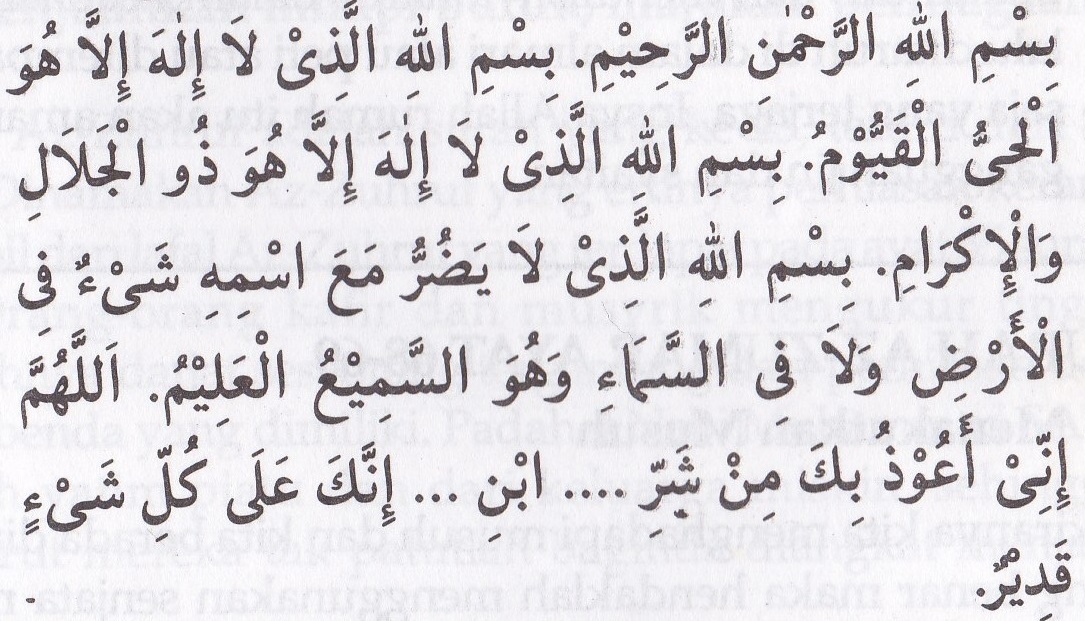 بِسْمِ اللهِ الرَّحْمٰنِ الرَّحِيْمِ. بِسْمِ اللهِ الَّذِىْ لَا إِلَهَ إِلَّا هُوَ
اَلْحَىُّ الْقَيُّوْمُ. بِسْمِ اللهِ الَّذِىْ لَا إِلَهَ إِلَّا هُوَ ذُو الْجَلَالِ
وَالْإِكْرَامِ. بِسْمِ اللهِ الَّذِىْ لَا يَضُرُّ مَعَ اسْمِهِ شَىْءٌ فِى
الْأَرْضِ وَلَا فِى السَّمَاءِ وَهُوَ السَّمِيْعُ الْعَلِيْمُ. اَللَّهُمَّ
إِنِّىْ أَعُوْذُ بِكَ مِنْ شَرِّ .... ابْنِ ... إِنَّكَ عَلَى كُلِّ شَىْءٍ
قَدِيْرٌ.